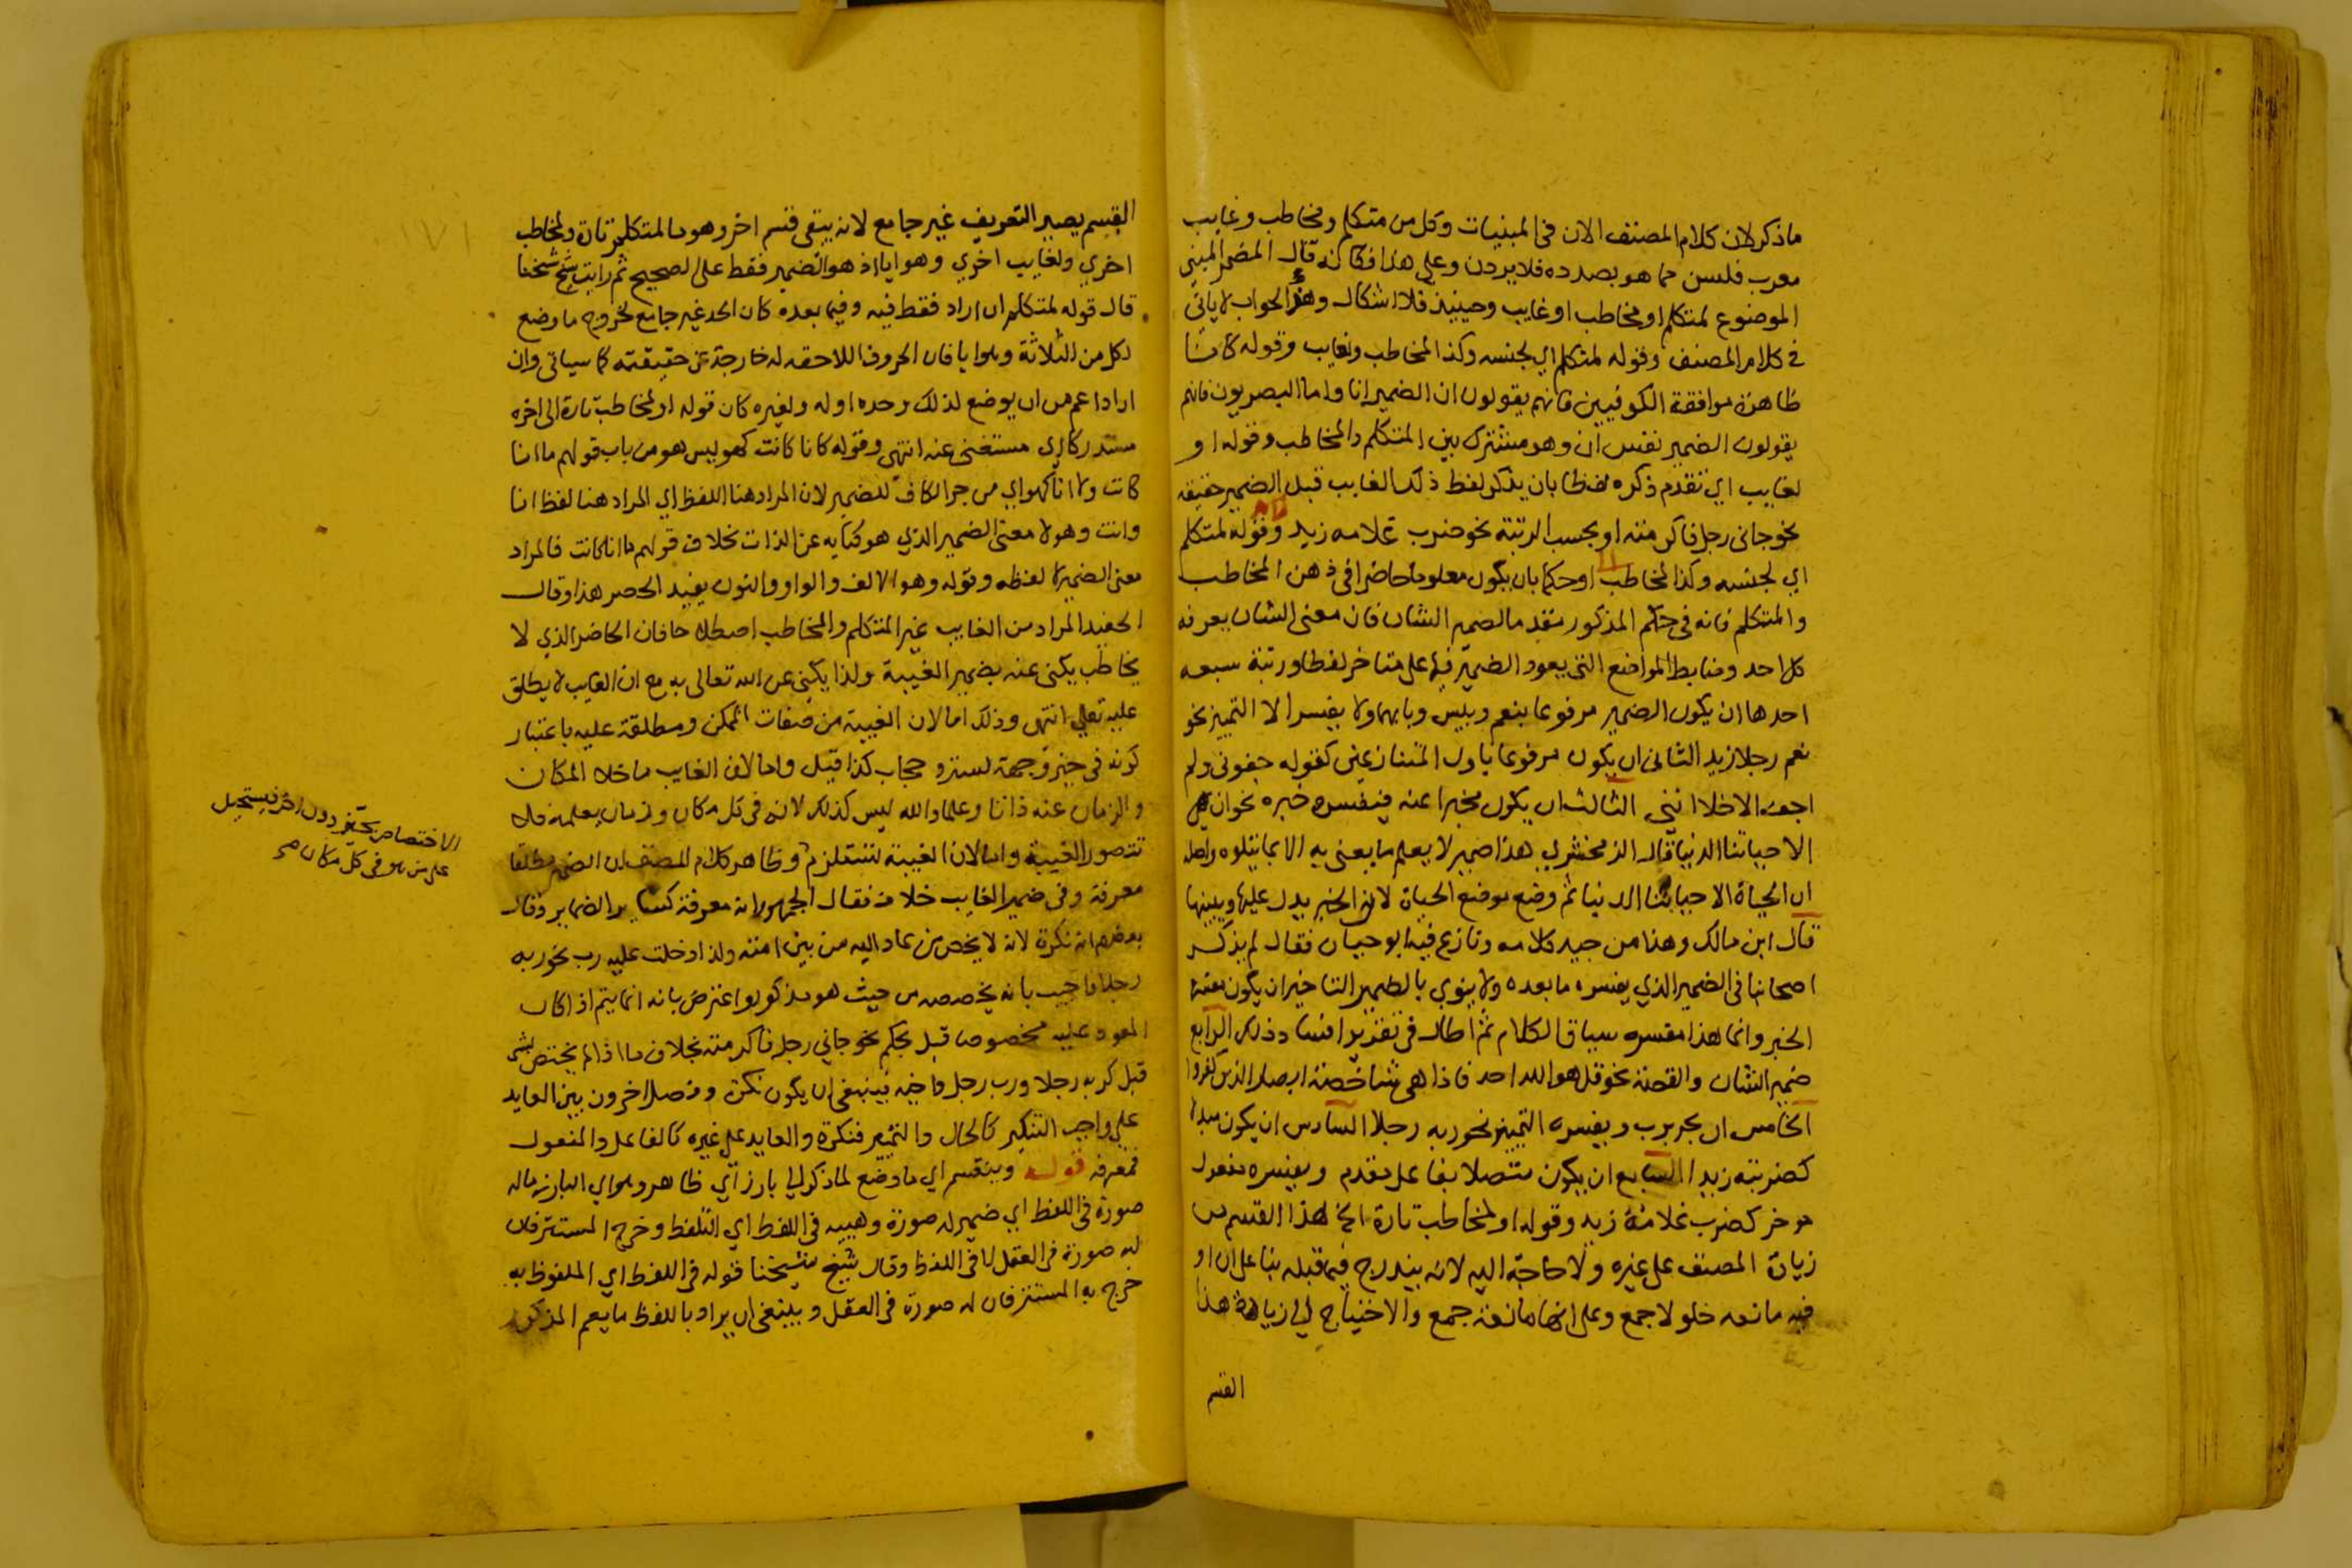 ماذكر لان كلام المصنف الان في المبنيات وكل من متكلم ومخاطب وغايب
معرب فليس مما هو بصدده فلا يردن وعلى هذا فكانه قال المضمر المبني
الموضوع لمتكلم او مخاطب او غايب وحينيذ فلا اشكال وهذا الجواب لا ياتي
في كلام المصنف وقوله لمتكلم اي لجنسه وكذا المخاطب والغايب وقوله كانا
ظاهره موافقة الكوفيين فانهم يقولون ان الضمير انا واما البصريون فانهم
يقولون الضمير نفس ان وهو مشترك بين المتكلم والمخاطب وقوله او
لغايب اي تقدم ذكره لفظا بان يذكر لفظ ذلك الغايب قبل الضمير حقيقة
نحو جاني رجل فاكرمته او بحسب الرتبة نحو ضرب غلامه زيد وقوله لمتكلم
اي لجنسه وكذا المخاطب او حكما بان يكون معلوما حاضرا في ذهن المخاطب
والمتكلم فانه في حكم المذكور متقدما كضمير الشان فان معنى الشان يعرفه
كل احد وضابط المواضع التي يعود الضمير فيها على متاخر لفظا ورتبة سبعه
احدها ان يكون الضمير مرفوعا بنعم وبيس وبابهما ولا يفسر الا التميز نحو
نعم رجلا زيد الثاني ان يكون مرفوعا باول المتنازعين كقوله جفوني ولم
اجف الاخلا انني الثالث ان يكون مخبرا عنه فيفسره خبره نحو ان هي
الا حياتنا الدنيا قال الزمخشري هذا ضمير لا يعلم ما يعنى به الا بما يتلوه واصله
ان الحياة الا حياتنا الدنيا ثم وضع هي موضع الحياة لان الخبر يدل عليها ويبينها
قال ابن مالك وهذا من جيد كلامه ونازع فيه ابو حيان فقال لم يذكر
اصحابنا في الضمير الذي يفسره ما بعده ولا ينوي بالضمير التاخير ان يكون مفسره
الخبر وانما هذا مفسره سياق الكلام ثم اطال في تقرير افساد ذلك الرابع
ضمير الشان والقصة نحو قل هو الله احد فاذا هي شاخصة ابصار الذين كفروا
الخامس ان يجر برب ويفسره التمييز نحو ربه رجلا السادس ان يكون مبدلا
كضربته زيدا السابع ان يكون متصلا بفاعل مقدم ويفسره مفعول
موخر كضرب غلامه زيد وقوله او لمخاطب تارة الخ هذا القسم من
زيادة المصنف على غيره ولا حاجة اليه لانه يندرج فيما قبله بنا على ان او
فيه مانعة خلو لا جمع وعلى انها مانعة جمع والاحتياج الى زيادة هذا
القسم
القسم يصير التعريف غير جامع لانه يبقى قسم اخر وهو ما لمتكلم تارة ولمخاطب
اخري ولغايب اخري وهو ايا اذ هو الضمير فقط على الصحيح ثم رايت شيخ شيخنا
قال قوله لمتكلم ان اراد فقط فيه وفيما بعده كان الحد غير جامع لخروج ما وضع
لكل من الثلاثة وهو ايا فان الحروف اللاحقة له خارجة عن حقيقته كما سياتي وان
اراد اعم من ان يوضع لذلك وحده او له ولغيره كان قوله او لمخاطب تارة الى اخره
مستدركا اي مستغنى عنه انتهى وقوله كانا كانت كهو ليس هو من باب قولهم ما انا
كانت ولا انا كهو اي من جر الكاف للضمير لان المراد هنا اللفظ اي المراد هنا لفظ انا
وانت وهو لا معنى الضمير الذي هو كناية عن الذات بخلاف قولهم ما انا كانت فالمراد
معنى الضمير لا لفظه وقوله وهو الالف والواو والنون يفيد الحصر هذا وقال
الحفيد المراد من الغايب غير المتكلم والمخاطب اصطلاحا فان الحاضر الذي لا
يخاطب يكنى عنه بضمير الغيبة ولذا يكنى عن الله تعالى به مع ان الغايب لا يطلق
عليه تعالى انتهى وذلك اما لان الغيبة من صفات الممكن ومطلقة عليه باعتبار
كونه في حيز وجهة لستر و حجاب كذا قيل واما لان الغايب ما خلا المكان
والزمان عنه ذاتا وعلما والله ليس كذلك لانه في كل مكان وزمان بعلمه فلا
تتصور الغيبة واما لان الغيبة تستلزم وظاهر كلام المصنف ان الضمير مطلقا
معرفة وفي ضمير الغايب خلاف فقال الجمهور انه معرفة كساير الضماير وقال
بعضهم انه نكرة لانه لا يخص من عاد اليه من بين امته ولذا دخلت عليه رب نحو ربه
رجلا واجيب بانه يخصصه من حيث هو مذكور واعترض بانه انما يتم اذا كان
المعود عليه مخصوصا قبل بحكم نحو جاني رجل فاكرمته بخلاف ما اذا لم يختص بشي
قبل كربه رجلا ورب رجل واخيه فينبغي ان يكون نكرة وفصل اخرون بين العايد
على واجب التنكير كالحال والتمييز فنكرة والعايد على غيره كالفاعل والمفعول
فمعرفه قوله وينقسم اي ما وضع لما ذكر الى بارز اي ظاهر وهو اي البارز ماله
صورة في اللفظ اي ضمير له صورة وهيية في اللفظ اي التلفظ وخرج المستتر فان
له صورة في العقل لا في اللفظ وقال شيخ شيخنا قوله في اللفظ اي الملفوظ به
خرج به المستتر فان له صورة في العقل وينبغي ان يراد باللفظ ما يعم المذكور
الاختصاص بحيز دون اخر فيستحيل
على من هو في كل مكان صح
١٧١